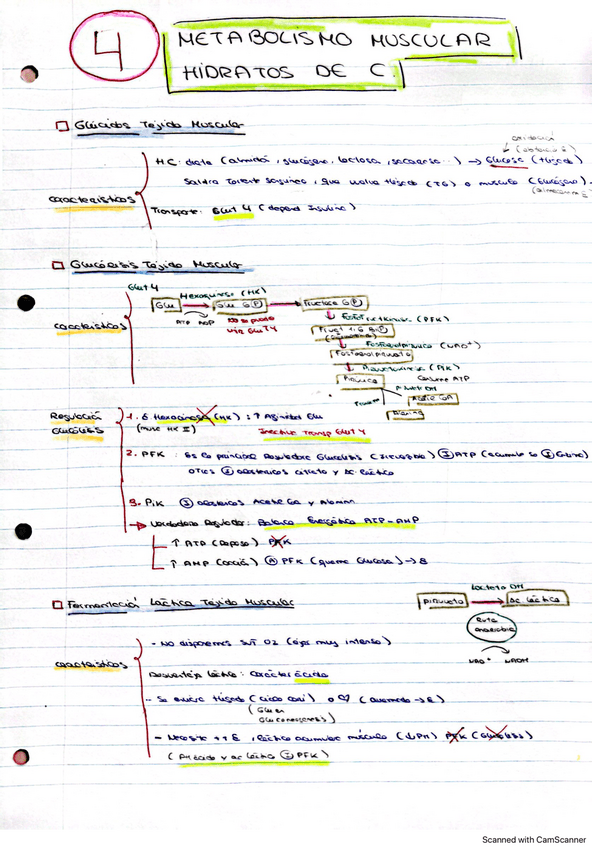 4
METABOLISMO MUSCULAR
HIDRATOS DE C.
Glúcidos Tejido Muscular
oxidación
(obtención E)
HC: dieta (almidón, glucógeno, lactosa, sacarosa...) → Glucosa (hígado)
Saldrá Torrente sanguíneo, que vuelve hígado (TG) o músculo (Glucógeno).
características
Transporte: Glut 4 (depend Insulina)
Glucólisis Tejido Muscular
Glut 4
Hexoquinasa (HK)
Glu → Glu 6 P → Fructosa 6 P
ATP ADP
no se puede
via Glut 4
Fosfofructokinasa (PFK)
características
(NAD+)
(PiK)
Consume ATP
Piruvato DH
Acetil CoA
Regulación
Glucólisis
1. Hexocinasa (HK): ↑
(musc HK II)
Inactiva Transp Glut 4
2. PFK: Es la principal Reguladora Glucólisis ATP
citrato y Ac. láctico
3. PiK Acetil CoA y Alanina
→ Verdadero Regulador: Balance Energético ATP-AMP
↑ ATP (Reposo) PFK
↑ AMP PFK (quema Glucosa) → E
Fermentación Láctica Tejido Muscular
Lactato DH
Piruvato → Ac láctico
Ruta
anaerobia
NAD+ NADH
- No disponemos O2 (ejer muy intenso)
Desventaja láctico: carácter ácido
características
- Se envía hígado (ciclo cori) o
(Glu en
Gluconeogénesis)
- Necesito ++ E, láctico acumular músculo (↓PH) PFK (Glucólisis)
y ac láctico PFK)
Scanned with CamScanner